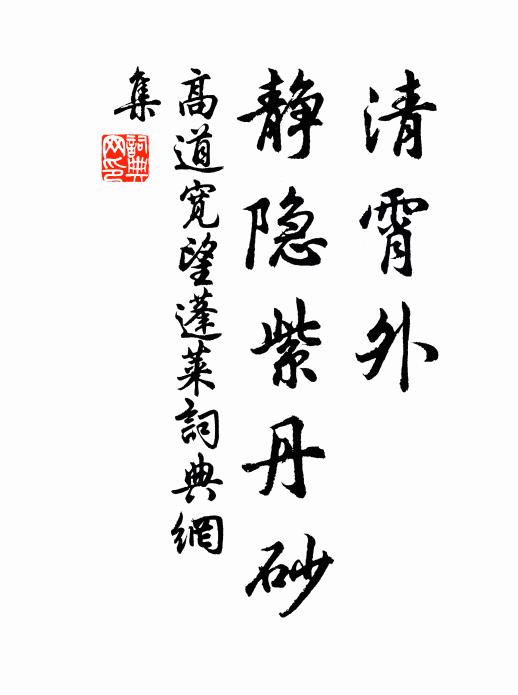 清霄外
静隐紫丹砂
高道寛望蓬莱詞典網
集
詞典
网印